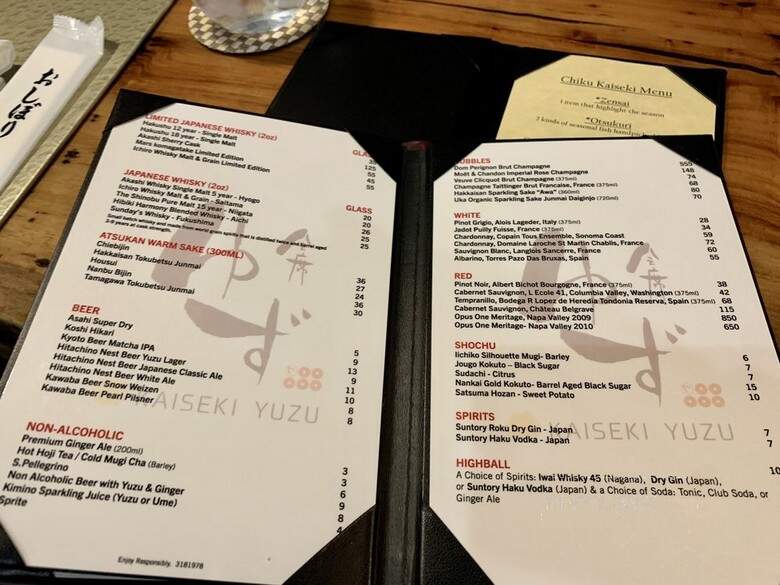 おしぼり
Chiku Kaiseki Menu
*Zensai
1 item that highlight the season
*Otsukuri
2 kinds of seasonal fish
LIMITED JAPANESE WHISKY (2oz) GLASS
Hakushu 12 year - Single Malt 35
Hakushu 18 year - Single Malt 125
Akashi Sherry Cask 45
Mars komagatake Limited Edition 45
Ichiro Whisky Malt & Grain Limited Edition 55
JAPANESE WHISKY (2oz) GLASS
Akashi Whisky Single Malt 5 year - Hyogo 20
Ichiro Whisky Malt & Grain - Saitama 20
The Shinobu Pure Malt 15 year - Niigata 26
Hibiki Harmony Blended Whisky - Aichi 25
Sunday's Whisky - Fukushima 25
Small batch whisky and made from world grown spirits that is distilled twice and barrel aged
3-8 years at cask strength.
ATSUKAN WARM SAKE (300ML)
Chiebijin 36
Hakkaisan Tokubetsu Junmai 27
Housui 24
Nanbu Bijin 36
Tamagawa Tokubetsu Junmai 30
BEER
Asahi Super Dry 5
Koshi Hikari 9
Kyoto Beer Matcha IPA 13
Hitachino Nest Beer Yuzu Lager 9
Hitachino Nest Beer Japanese Classic Ale 11
Hitachino Nest Beer White Ale 10
Kawaba Beer Snow Weizen 8
Kawaba Beer Pearl Pilsner 8
NON-ALCOHOLIC
Premium Ginger Ale (200ml) 3
Hot Hoji Tea / Cold Mugi Cha (Barley) 3
S.Pellegrino 6
Non Alcoholic Beer with Yuzu & Ginger 9
Kimino Sparkling Juice (Yuzu or Ume) 8
Sprite 4
Enjoy Responsibly. 3181978
会席
ゆず
KAISEKI YUZU
BUBBLES
Dom Perignon Brut Champagne 555
Moët & Chandon Imperial Rose Champagne 148
Veuve Clicquot Brut Champagne (375ml) 74
Champagne Taitinger Brut Francaise, France (375ml) 68
Hakkaisan Sparkling Sake "Awa" (360ml) 80
Uka Organic Sparkling Sake Junmai Daiginjo (720ml) 70
WHITE
Pinot Grigio, Alois Lageder, Italy (375ml) 28
Jadot Puilly Fuisse, France (375ml) 34
Chardonnay, Copain Tous Ensemble, Sonoma Coast 59
Chardonnay, Domaine Laroche St Martin Chablis, France 72
Sauvignon Blanc, Langlois Sancerre, France 60
Albarino, Torres Pazo Das Bruxas, Spain 55
RED
Pinot Noir, Albert Bichot Bourgogne, France (375ml) 38
Cabernet Sauvignon, L Ecole 41, Columbia Valley, Washington (375ml) 42
Tempranillo, Bodega R Lopez de Heredia Tondonia Reserva, Spain (375ml) 68
Cabernet Sauvignon, Château Belgrave 115
Opus One Meritage, Napa Valley 2009 850
Opus One Meritage- Napa Valley 2010 650
SHOCHU
Iichiko Silhouette Mugi- Barley 6
Jougo Kokuto – Black Sugar 7
Sudachi - Citrus 7
Nankai Gold Kokuto- Barrel Aged Black Sugar 15
Satsuma Hozan - Sweet Potato 10
SPIRITS
Suntory Roku Dry Gin - Japan 7
Suntory Haku Vodka - Japan 7
HIGHBALL 10
A Choice of Spirits: Iwai Whisky 45 (Nagana), Dry Gin (Japan),
or Suntory Haku Vodka (Japan) & a Choice of Soda: Tonic, Club Soda, or
Ginger Ale
会席
ゆず
KAISEKI YUZU